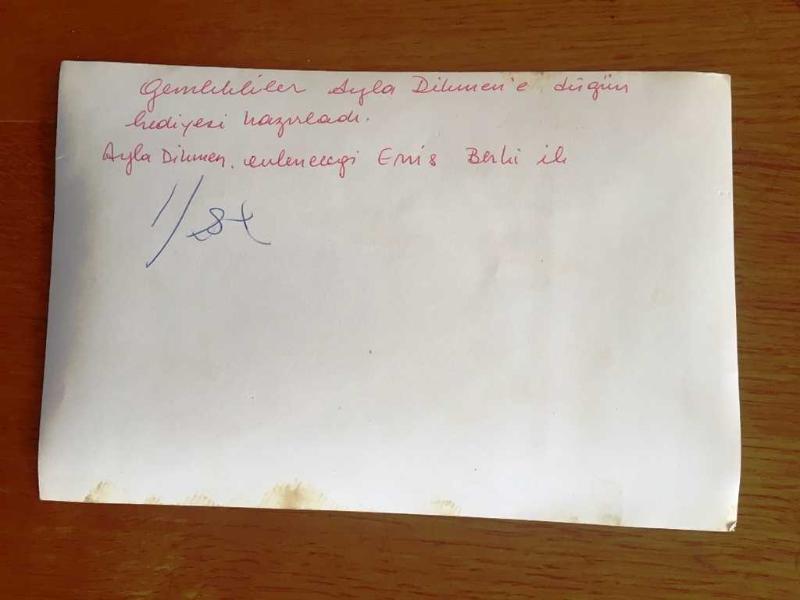 Gemlikliler Ayla Dikmen'e düğün
hediyesi hazırladı.
Ayla Dikmen, evleneceği Enis Berki ile
1/